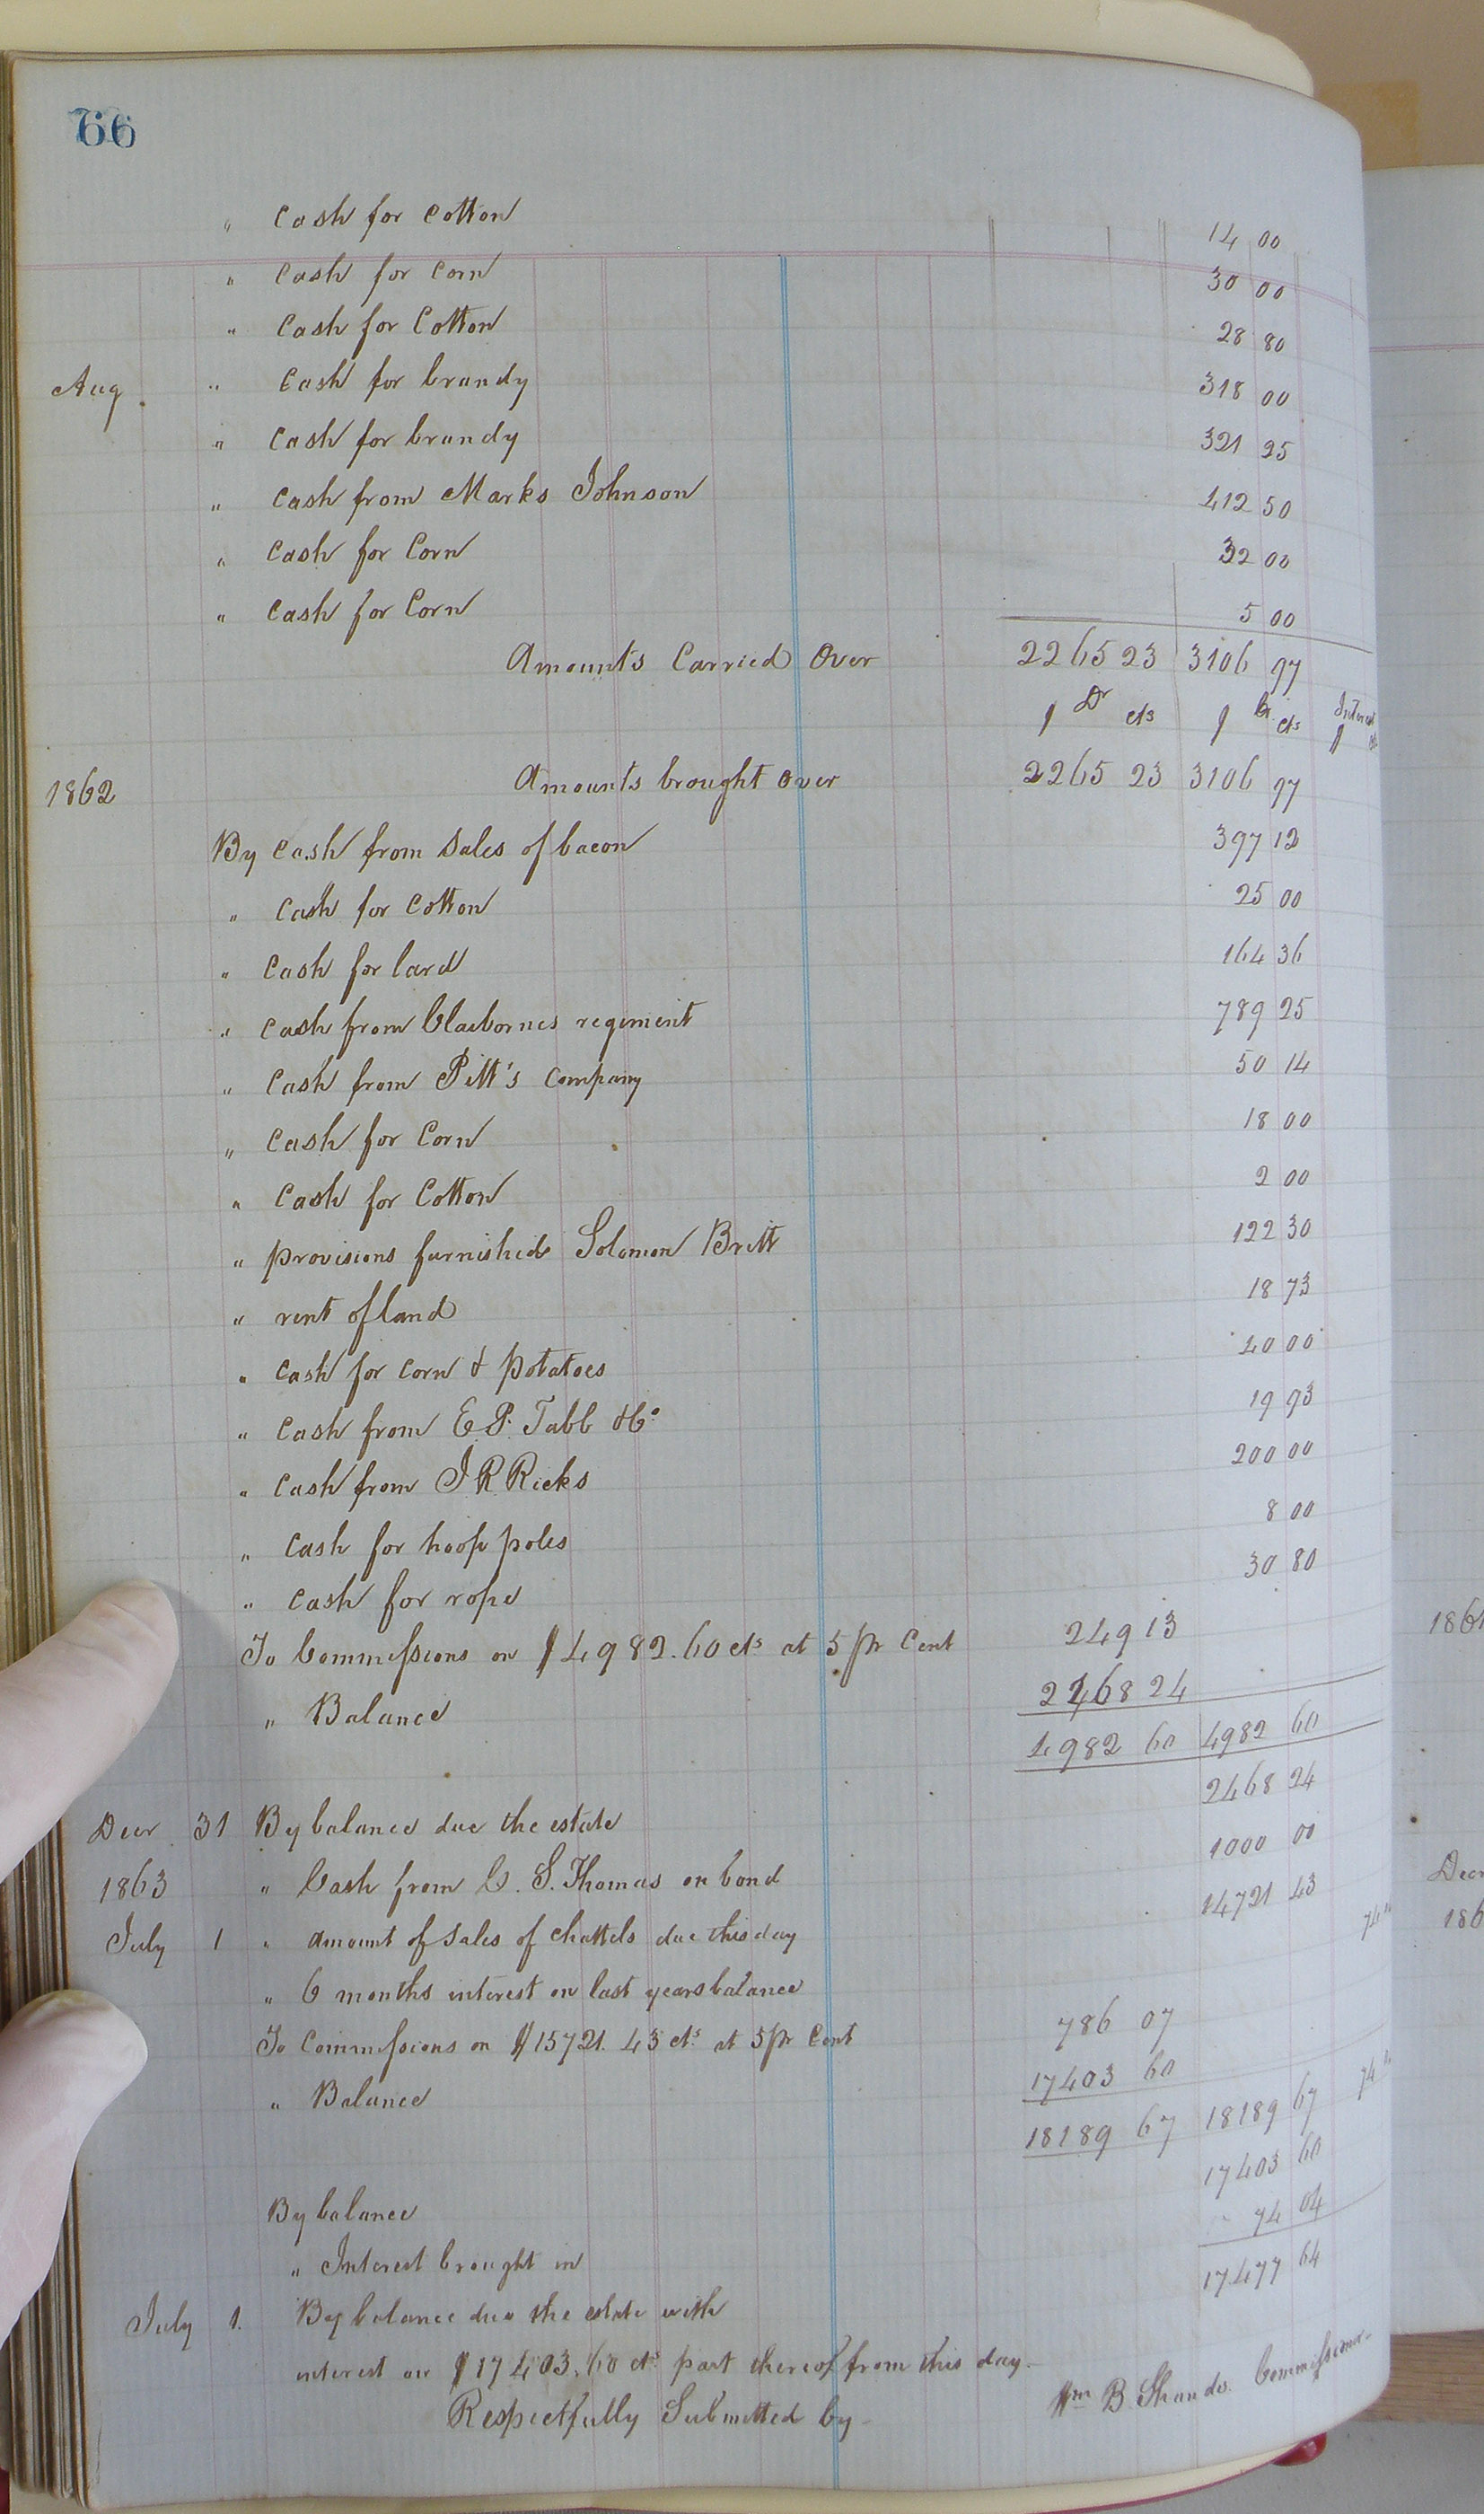 66
" Cash for Cotton 14 00
" Cash for Corn 30 00
" Cash for Cotton 28 80
Aug " Cash for brandy 318 00
" Cash for brandy 321 25
" Cash from Marks Johnson 412 50
" Cash for Corn 32 00
" Cash for Corn 5 00
Amounts Carried Over 2265 23 3106 97
$ Dr cts $ Cr cts Interest $
1862 Amounts brought over 2265 23 3106 97
By cash from sales of bacon 397 12
" Cash for Cotton 25 00
" Cash for lard 164 36
" Cash from Claibornes regiment 789 25
" Cash from Pitt's Company 50 14
" Cash for Corn 18 00
" Cash for Cotton 2 00
" provisions furnished Solomon Britt 122 30
" rent of land 18 73
" Cash for corn & potatoes 40 00
" Cash from E P. Tabb & Co 19 93
" Cash from J R Ricks 200 00
" Cash for hoop poles 8 00
" Cash for rope 30 80
To Commissions on $4982.60 cts at 5 pr Cent 249 13
" Balance 2468 24
4982 60 4982 60
Decr 31 By balance due the estate 2468 24
1863 " Cash from C. S. Thomas on bond 1000 00
July 1 " amount of sales of chattels due this day 14721 43
" 6 months interest on last years balance 74
To Commissions on $15721.43 cts at 5 pr Cent 786 07
" Balance 17403 60
18189 67 18189 67 74
By balance 17403 60
" Interest brought in 74 04
17477 64
July 1. By balance due the estate with
interest on $17403.60 cts part thereof from this day.
Respectfully Submitted by
Wm B. Shands. Commissioner.
1861
Decr
186